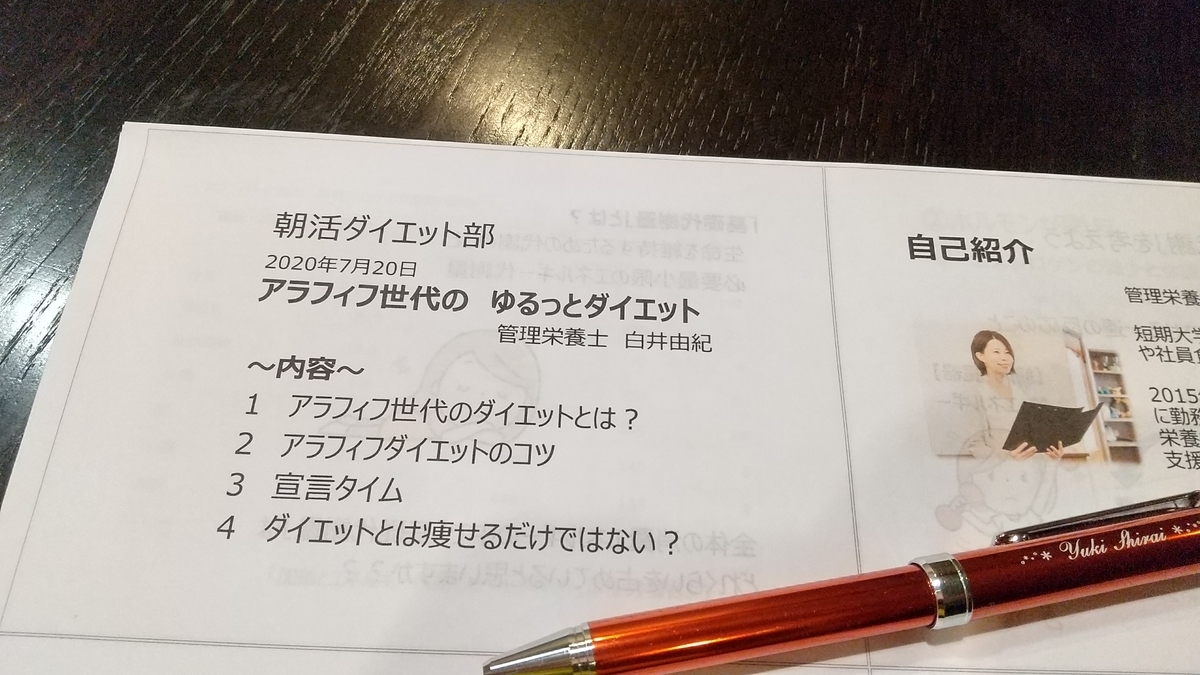 朝活ダイエット部
2020年7月20日
アラフィフ世代の ゆるっとダイエット
管理栄養士 白井由紀
～内容～
1 アラフィフ世代のダイエットとは？
2 アラフィフダイエットのコツ
3 宣言タイム
4 ダイエットとは痩せるだけではない？
自己紹介
管理栄養
短期大学
や社員食
2015
に勤務
栄養
支援
Yuki Shirai